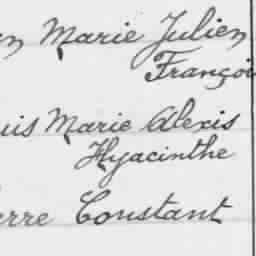 Marie Julien
Françoi
uis Marie Alexis
Hyacinthe
erre Constant